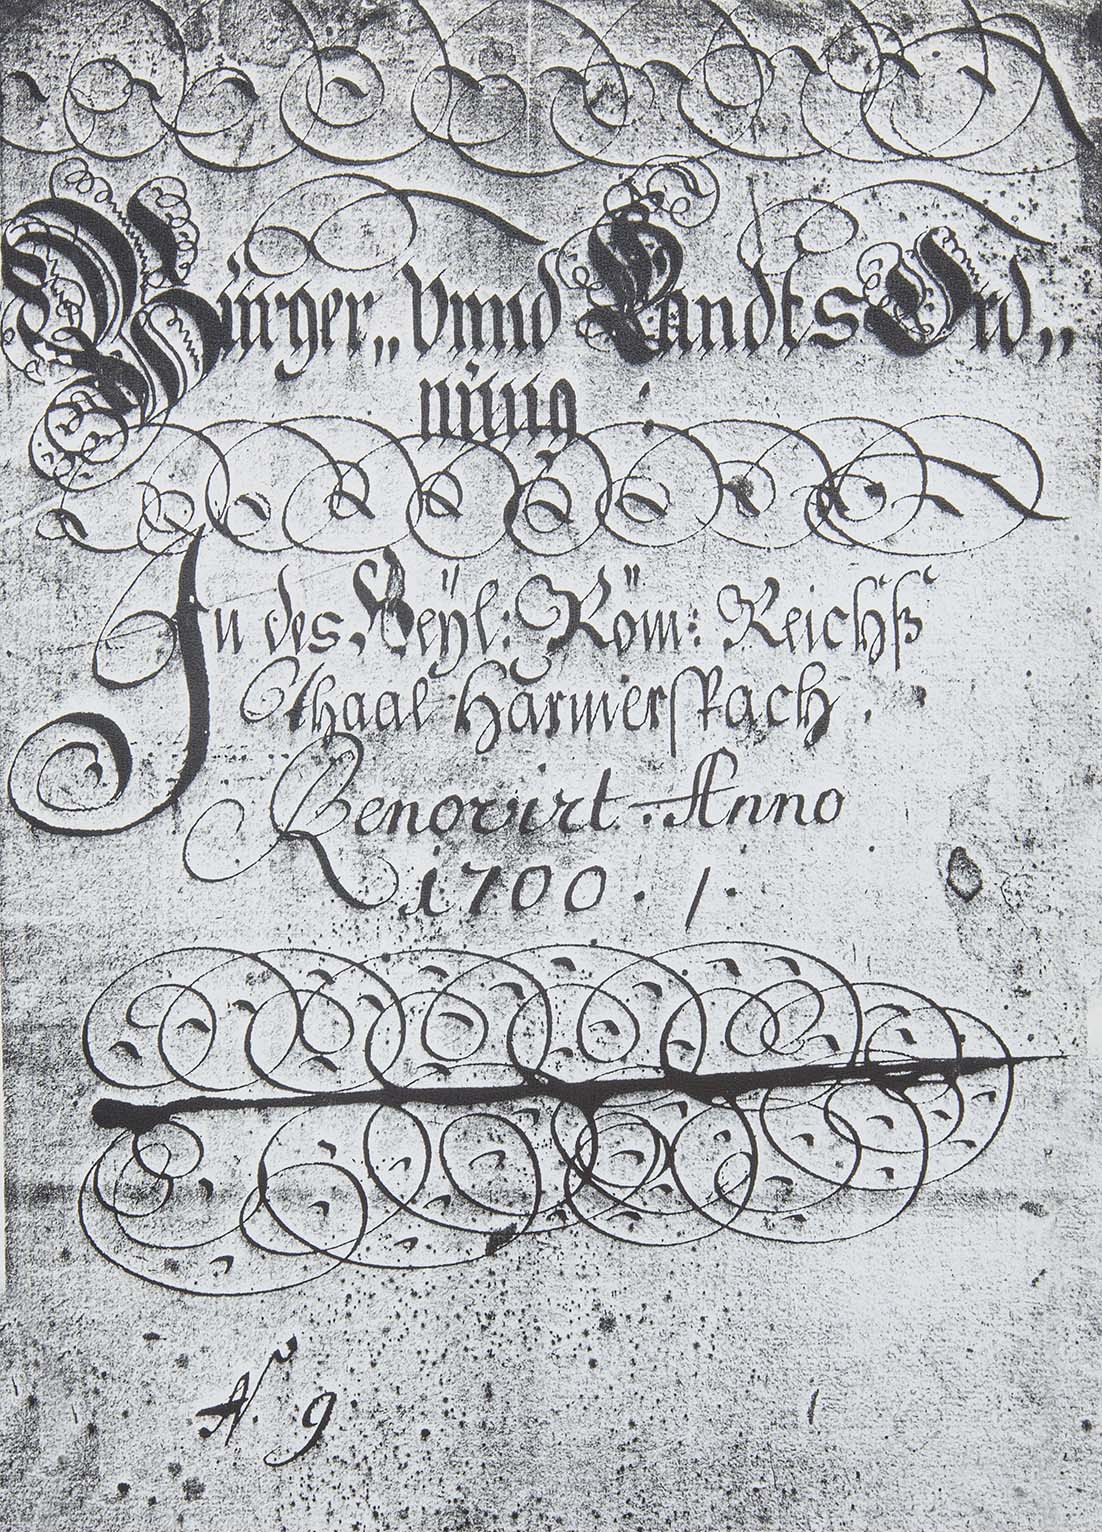 Bürger„ Vnnd Landts Ord„
nüng
In des Heÿl: Röm: Reichß
thaal Harmerspach.
Renovirt. Anno
1700.
N 9